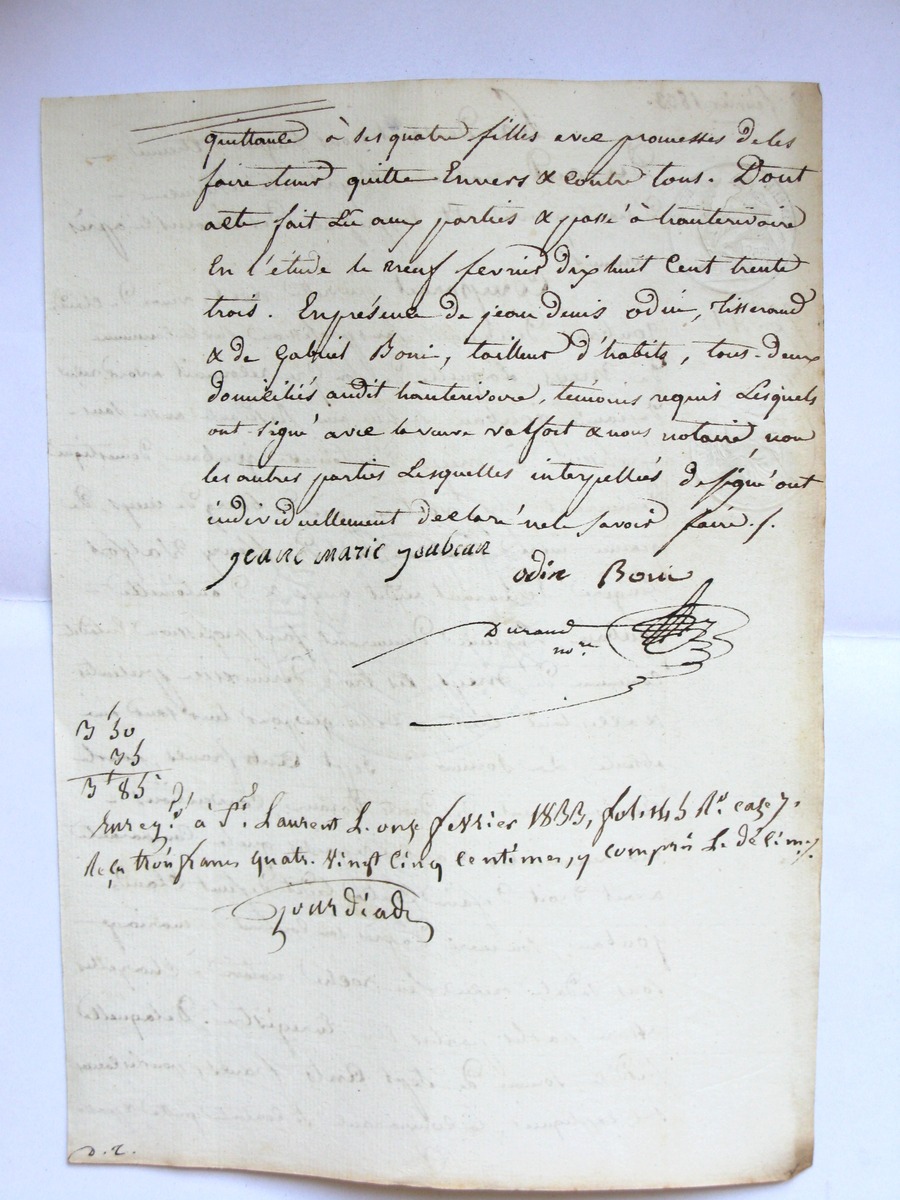 quittance à ses quatre filles avec promesses de les
faire tenir quitte Envers & contre tous. Dont
acte fait Lû aux parties & passé à hauterivoire
En l'étude le neuf fevrier dix huit Cent trente
trois. En présence de jean denis odin, tisserand
& de Gabriel Boni, tailleur d'habits, tous-deux
domiciliés audit hauterivoire, témoins requis Lesquels
ont signé avec la veuve valfort & nous notaire, non
les autres parties Lesquelles interpellées de signé ont
individuellement déclaré ne le savoir faire ./.
jeane marie joubean
odin Boni
Durand
nore
3 50
35
3 85
Enregé à St. Laurent L. onze fevrier 1833, fol. 145 Ro. case 7.
Reçu trois francs quatre-vingt cinq centimes, y compris Le décime ./.
D. 2.